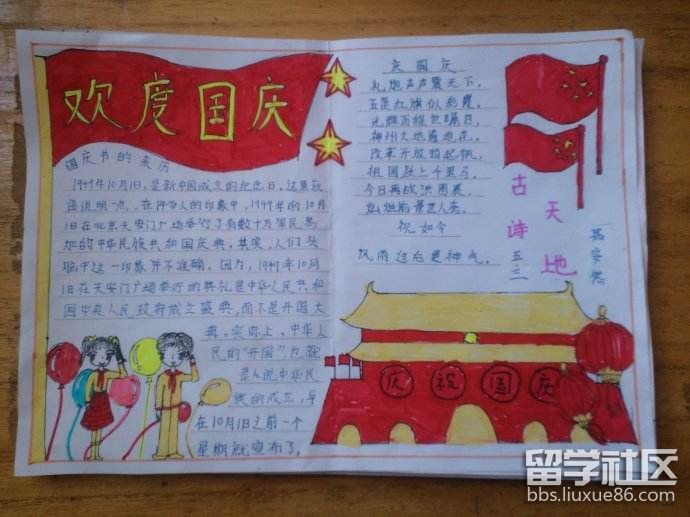 欢度国庆
国庆节的来历
1949年10月1日,是新中国成立的纪念日。这里应
告说明一点,在许多人的印象中,1949年的10月
1日在北京天安门广场举行了有数十万军民参
加的中华人民共和国国庆典。其实,人们头
脑中这一印象并不准确。因为,1949年10月
1日在天安门广场举行的典礼是中华人民共和
国中央人民政府成立盛典,而不是开国大
典。实际上,中华人
民的"开国",也就
是说中华民
族的成立,早
在10月1日之前一个
星期就宣布了。
国庆
礼炮声声震天下,
五星红旗似彩霞。
神州大地遍地花。
改革开放
祖国跃上千里马。
今日再战洪图展,
祝如今
风雨过后更神气。
古诗
天地
五三
庆祝国庆
留学社区
bbs.liuxue86.com